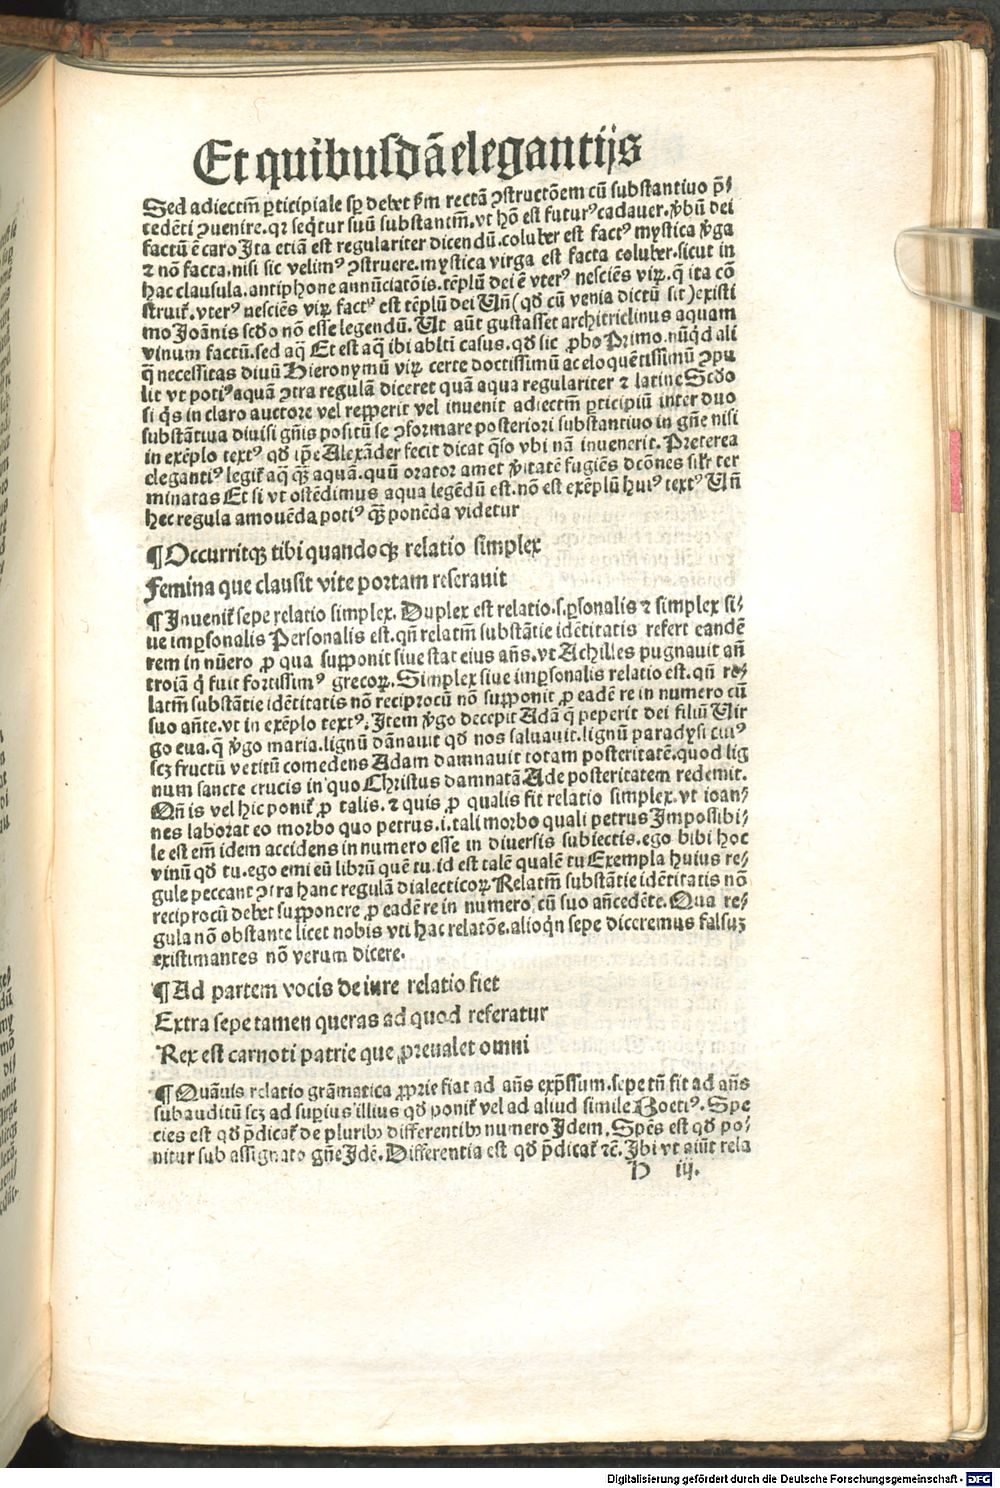 Et quibusdā elegantijs
Sed adiectm̄ ꝑticipiale sp̄ debet ẜm rectā ꝯstructōem cū substantiuo p̄⸗
cedēti ꝯuenire. qꝛ seq̄tur suū substantm̄. vt hō est futurꝰ cadauer. v̓bū dei
factū ē caro Ita etiā est regulariter dicendū. coluber est factꝰ mystica v̓ga
⁊ nō facta. nisi sic velimꝰ ꝯstruere. mystica virga est facta coluber. sicut in
hac clausula. antiphone annūciatōis. tēplū dei ē vterꝰ nesciēs viꝝ. q̄ ita cō
struit᷑. vterꝰ nesciēs viꝝ factꝰ est tēplū dei Vn̄ (qd̄ cū venia dictū sit) existi
mo Joānis scd̓o nō esse legendū. Ut aūt gustasset architriclinus aquam
vinum factū. sed aq̄ Et est aq̄ ibi ablti casus. qd̄ sic ꝓbo Primo. nūqd̄ ali
q̄ necessitas diuū Hieronymū viꝝ certe doctissimū ac eloquētissimū ꝯpu
lit vt potiꝰ aquā ꝯtra regulā diceret quā aqua regulariter ⁊ latine Scd̓o
si q̄s in claro auctore vel repperit vel inuenit adiectm̄ ꝑticipiū inter duo
substātiua diuisi gn̄is positū se ꝯformare posteriori substantiuo in gn̄e nisi
in exēplo textꝰ qd̄ ip̄e Alexāder fecit dicat q̄so vbi nā inuenerit. Preterea
elegantiꝰ legit᷑ aq̄ q̄ꝫ aquā. quū orator amet v̓itatē fugiēs dcōnes silr̄ ter
minatas Et si vt ostēdimus aqua legēdū est. nō est exēplū huiꝰ textꝰ Vn̄
hec regula amouēda potiꝰ q̄ꝫ ponēda videtur
¶ Occurritqꝫ tibi quandoqꝫ relatio simplex
Femina que clausit vite portam reserauit
¶ Inuenit᷑ sepe relatio simplex. Duplex est relatio. s. ꝑsonalis ⁊ simplex si⸗
ue imꝑsonalis Personalis est. qn̄ relatm̄ substātie idētitatis refert eandē
rem in nūero ꝓ qua supponit siue stat eius an̄s. vt Achilles pugnauit an̄
troiā q̄ fuit fortissimꝰ grecoꝝ. Simplex siue imꝑsonalis relatio est. qn̄ re⸗
latm̄ substātie idētitatis nō reciprocū nō supponit ꝓ eadē re in numero cū
suo an̄te. vt in exēplo textꝰ. Item v̓go decepit Adā q̄ peperit dei filiū Vir
go eua. q̄ v̓go maria. lignū dānauit qd̄ nos saluauit. lignū paradysi cuiꝰ
scꝫ fructū vetitū comedens Adam damnauit totam posteritatē. quod lig
num sancte crucis in quo Christus damnatā Ade posteritatem redemit.
Qn̄ is vel hic ponit᷑ ꝓ talis. ⁊ quis ꝓ qualis fit relatio simplex. vt ioan⸗
nes laborat eo morbo quo petrus. i. tali morbo quali petrus Impossibi⸗
le est em̄ idem accidens in numero esse in diuersis subiectis. ego bibi hoc
vinū qd̄ tu. ego emi eū librū quē tu. id est talē qualē tu Exempla huius re⸗
gule peccant ꝯtra hanc regulā dialecticoꝝ. Relatm̄ substātie idētitatis nō
reciprocū debet supponere ꝓ eadē re in numero cū suo an̄cedēte. Qua re⸗
gula nō obstante licet nobis vti hac relatōe. alioqn̄ sepe diceremus falsuꝫ
existimantes nō verum dicere.
¶ Ad partem vocis de iure relatio fiet
Extra sepe tamen queras ad quod referatur
Rex est carnoti patrie que preualet omni
¶ Quāuis relatio grāmatica ꝓprie fiat ad an̄s exp̄ssum. sepe tn̄ fit ad an̄s
subauditū scꝫ ad suꝑius illius qd̄ ponit᷑ vel ad aliud simile Boetiꝰ. Spe
cies est qd̄ p̄dicat᷑ de pluribꝰ differentibꝰ numero Idem. Spēs est qd̄ po⸗
nitur sub assignato gn̄e Idē. Differentia est qd̄ p̄dicat᷑ ⁊c̄. Ibi vt aiūt rela
H iij.
Digitalisierung gefördert durch die Deutsche Forschungsgemeinschaft - DFG